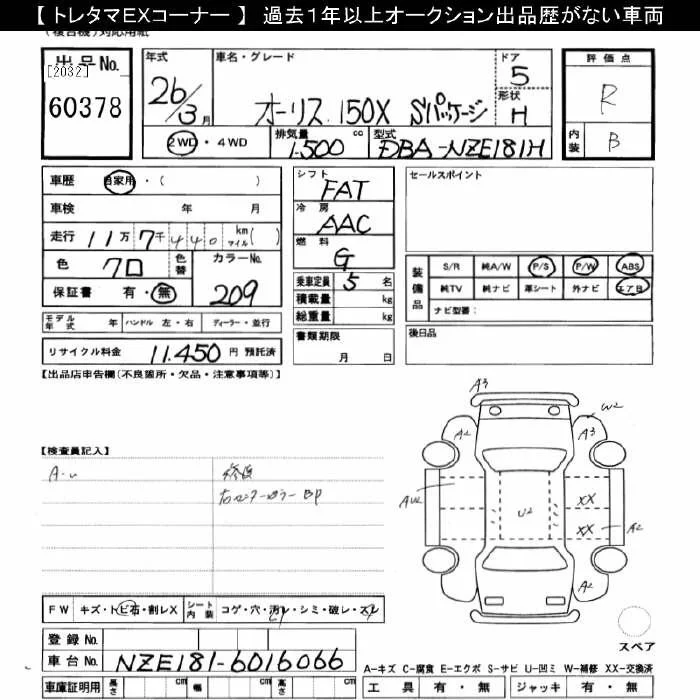 【 トレタマEXコーナー 】 過去1年以上オークション出品歴がない車両
出品No. [2032]
60378
年式 26/3月
車名・グレード オーリス 150X Sパッケージ
ドア 5
形状 H
評価点 R
内装 B
2WD・4WD
排気量 1.500 cc
型式 DBA-NZE181H
車歴 自家用・( )
車検 年 月
走行 11万7千440 km マイル( )
色 クロ
色替
カラーNo. 209
保証書 有・無
モデル年式 年 ハンドル 左・右 ディーラー・並行
リサイクル料金 11.450 円 預託済
シフト FAT
冷房 AAC
燃料 G
乗車定員 5 名
積載量 kg
総重量 kg
書類期限 月 日
セールスポイント
装備品
S/R 純A/W P/S P/W ABS
純TV 純ナビ 革シート 外ナビ エアB
ナビ型番:
後日品
【出品店申告欄(不良箇所・欠品・注意事項等)】
【検査員記入】
A3
W2
A2 A3
AU2 U2 XX
XX A2
A2
スペア
FW キズ・トビ石・割レX
シート内装 コゲ・穴・汚レ・シミ・破レ・スレ
登録No.
車台No. NZE181-6016066
車庫証明用 長さ cm 幅 cm 高さ cm
A-キズ C-腐食 E-エクボ S-サビ U-凹ミ W-補修 XX-交換済
工具 有・無 ジャッキ 有・無